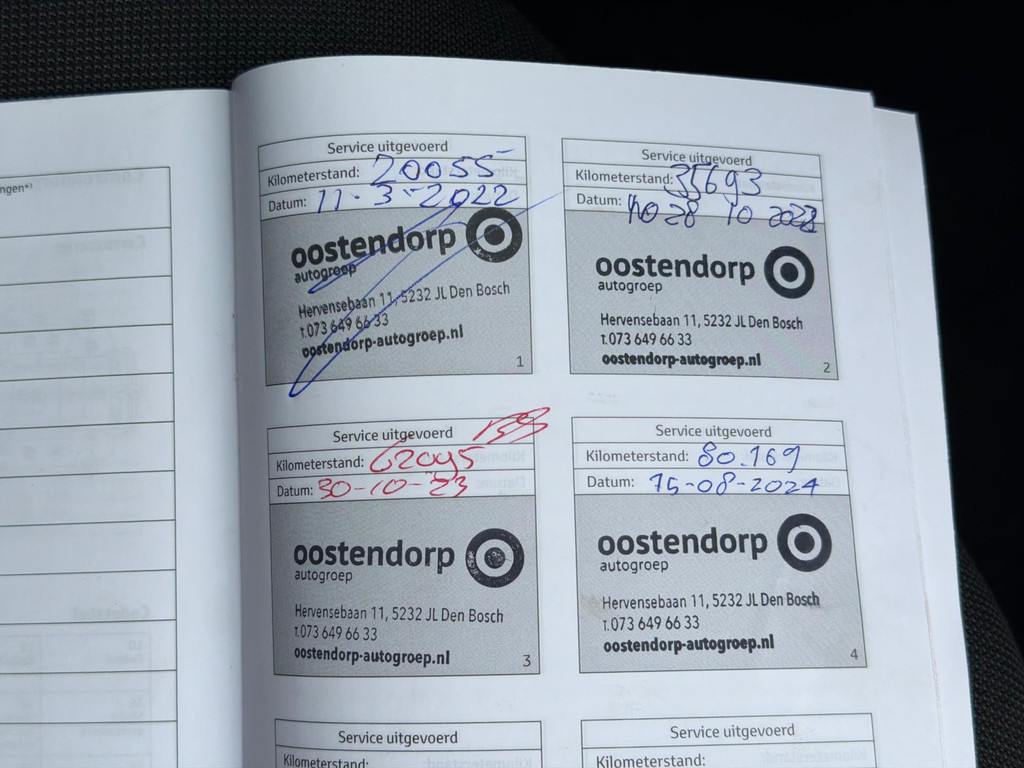 ngen*³
Service uitgevoerd
Kilometerstand: 20055
Datum: 11-3-2022
oostendorp
autogroep
Hervensebaan 11, 5232 JL Den Bosch
t.073 649 66 33
oostendorp-autogroep.nl
1
Service uitgevoerd
Kilometerstand: 35693
Datum: 28 10
oostendorp
autogroep
Hervensebaan 11, 5232 JL Den Bosch
t.073 649 66 33
oostendorp-autogroep.nl
2
Service uitgevoerd
Kilometerstand: 62095
Datum: 30-10-23
oostendorp
autogroep
Hervensebaan 11, 5232 JL Den Bosch
t.073 649 66 33
oostendorp-autogroep.nl
3
Service uitgevoerd
Kilometerstand: 80.169
Datum: 15-08-2024
oostendorp
autogroep
Hervensebaan 11, 5232 JL Den Bosch
t.073 649 66 33
oostendorp-autogroep.nl
4
Service uitgevoerd
Kilometerstand:
Service uitgevoerd
Kilometerstand: